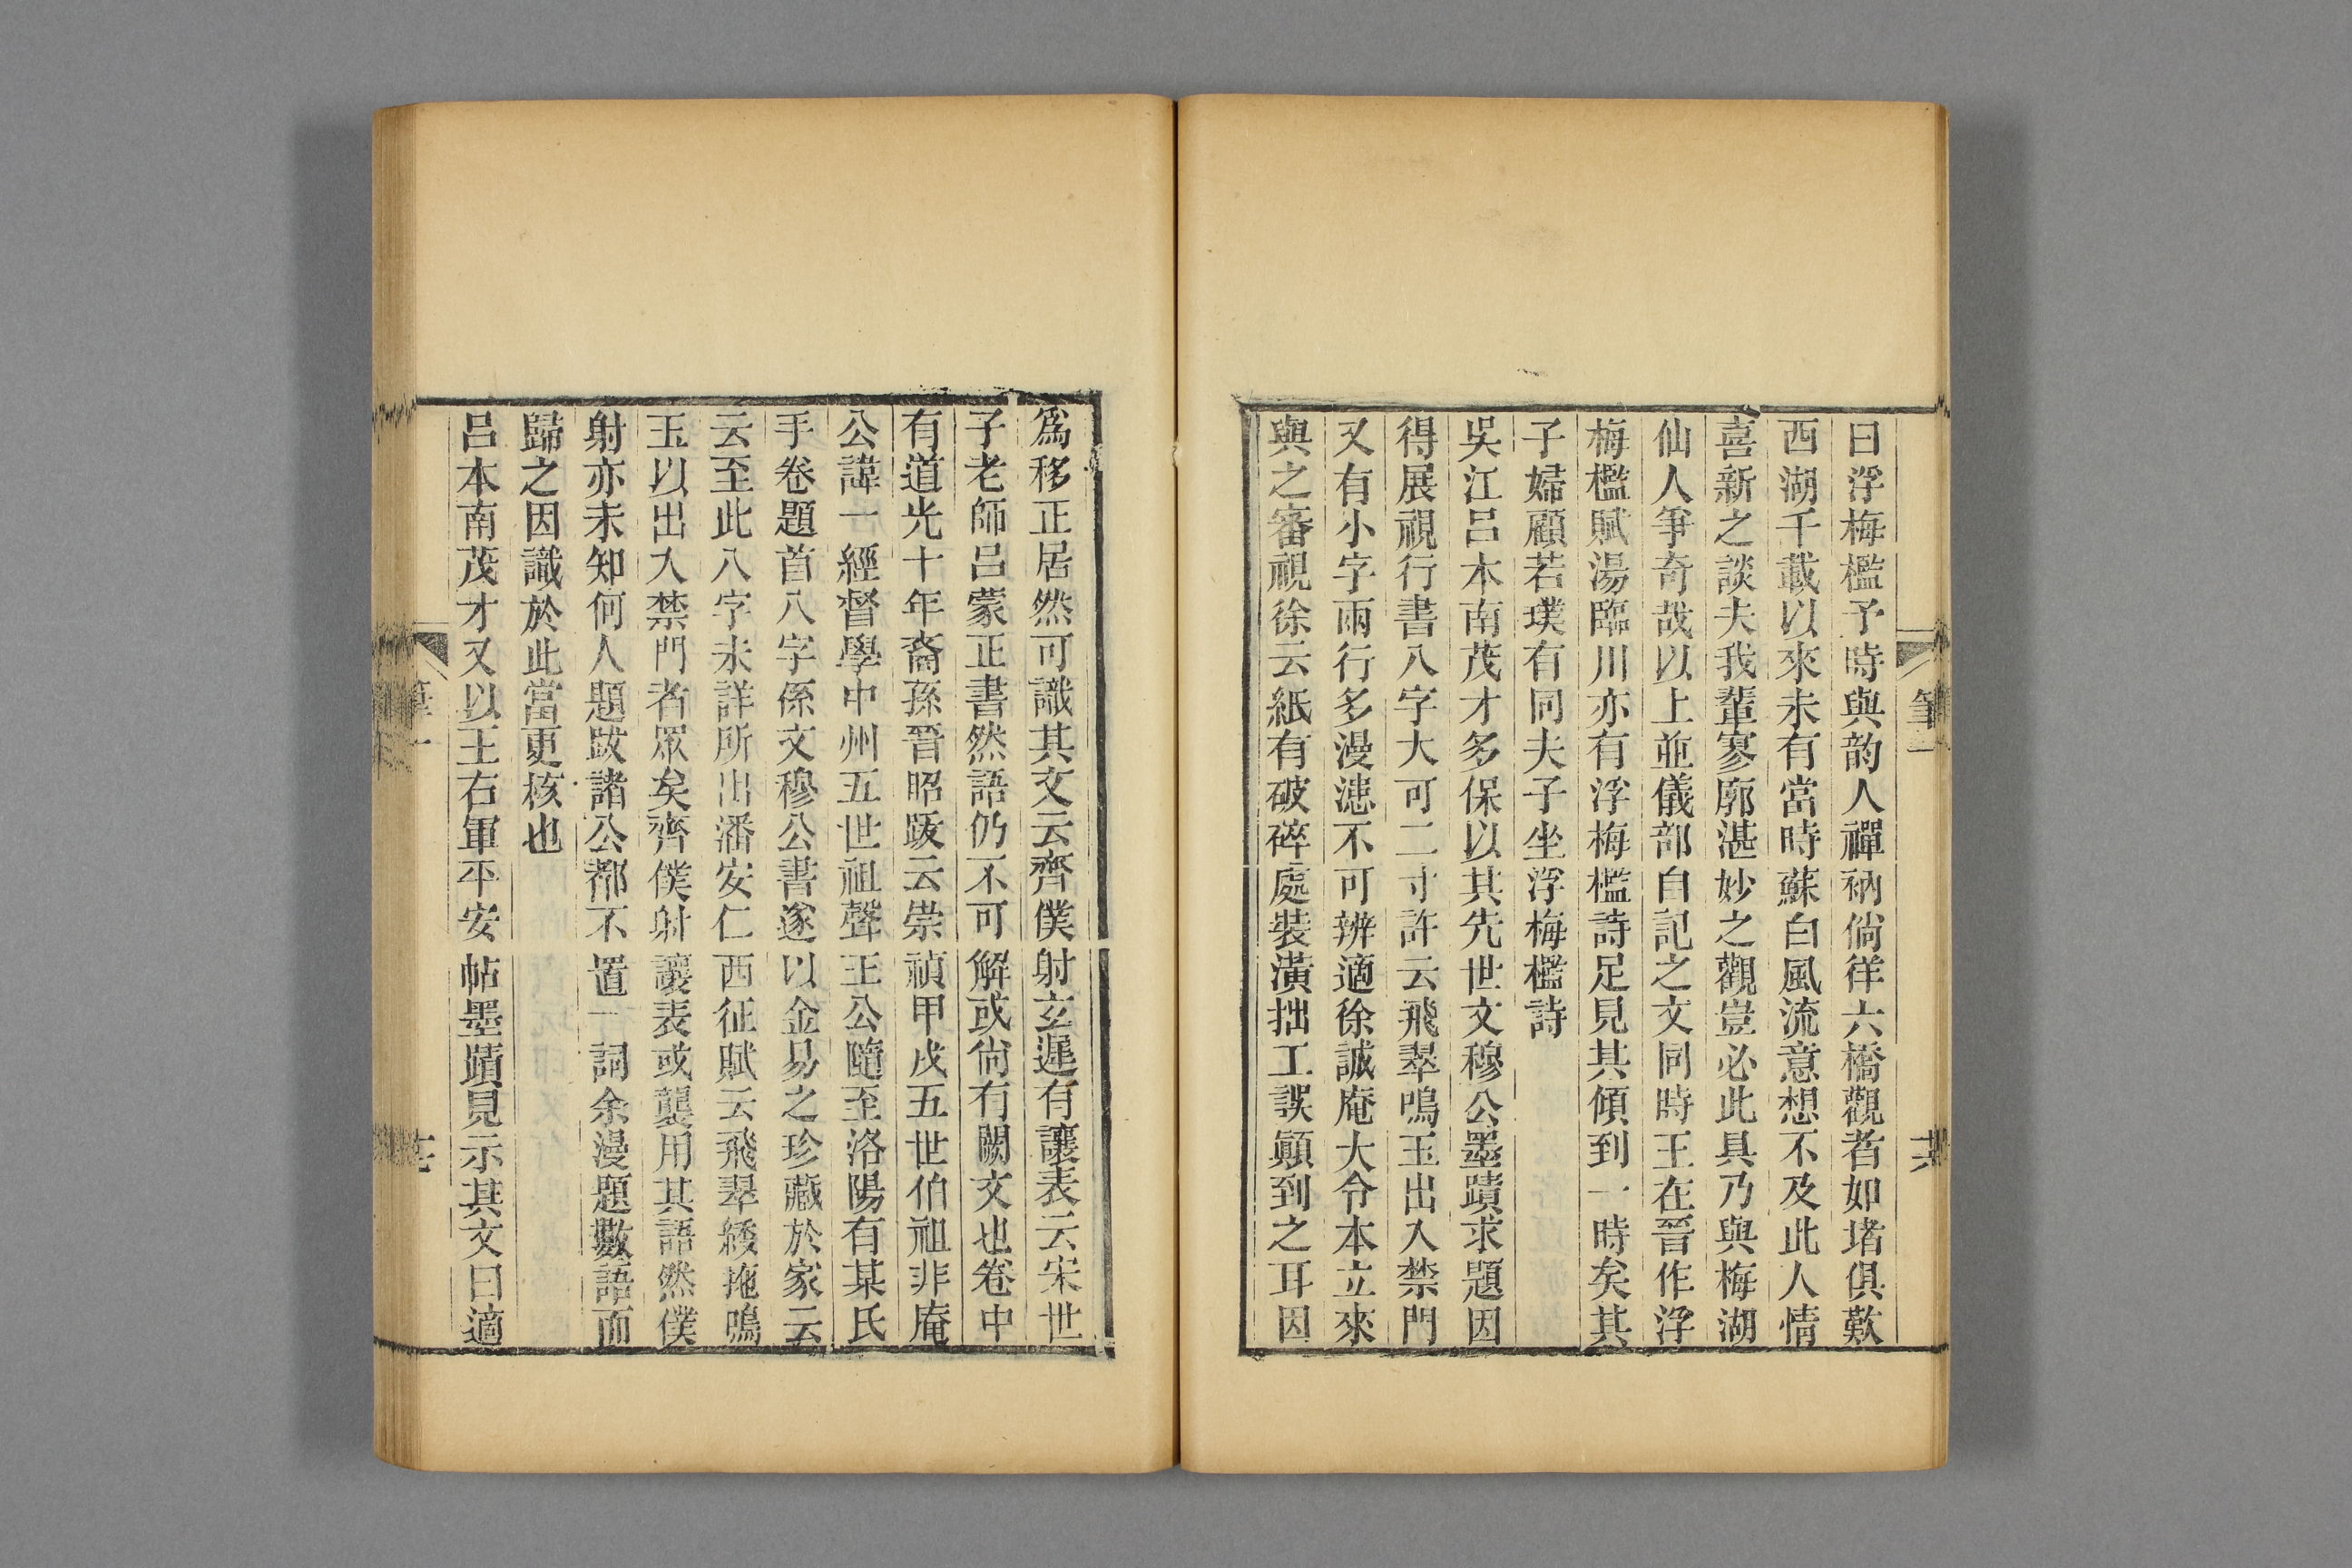 曰浮梅檻予時與韵人禪衲倘徉六橋觀者如堵俱歎
西湖千載以來未有當時蘇白風流意想不及此人情
喜新之談夫我輩寥廓湛妙之觀豈必此具乃與梅湖
仙人爭奇哉以上並儀部自記之文同時王在晉作浮
梅檻賦湯臨川亦有浮梅檻詩足見其傾到一時矣其
子婦顧若璞有同夫子坐浮梅檻詩
吳江呂本南茂才多保以其先世文穆公墨蹟求題因
得展視行書八字大可二寸許云飛翠鳴玉出入禁門
又有小字兩行多漫漶不可辨適徐誠庵大令本立來
與之審視徐云紙有破碎處裝潢拙工誤顚到之耳因
筆一
為移正居然可識其文云齊僕射玄遲有讓表云宋世
子老師呂蒙正書然語仍不可解或尙有闕文也卷中
有道光十年裔孫晉昭跋云崇禎甲戌五世伯祖非庵
公諱一經督學中州五世祖聲王公隨至洛陽有某氏
手卷題首八字係文穆公書遂以金易之珍藏於家云
云至此八字未詳所出潘安仁西征賦云飛翠緌拖鳴
玉以出入禁門者眾矣齊僕射讓表或襲用其語然僕
射亦未知何人題跋諸公都不置一詞余漫題數語而
歸之因識於此當更核也
呂本南茂才又以王右軍平安帖墨蹟見示其文曰適